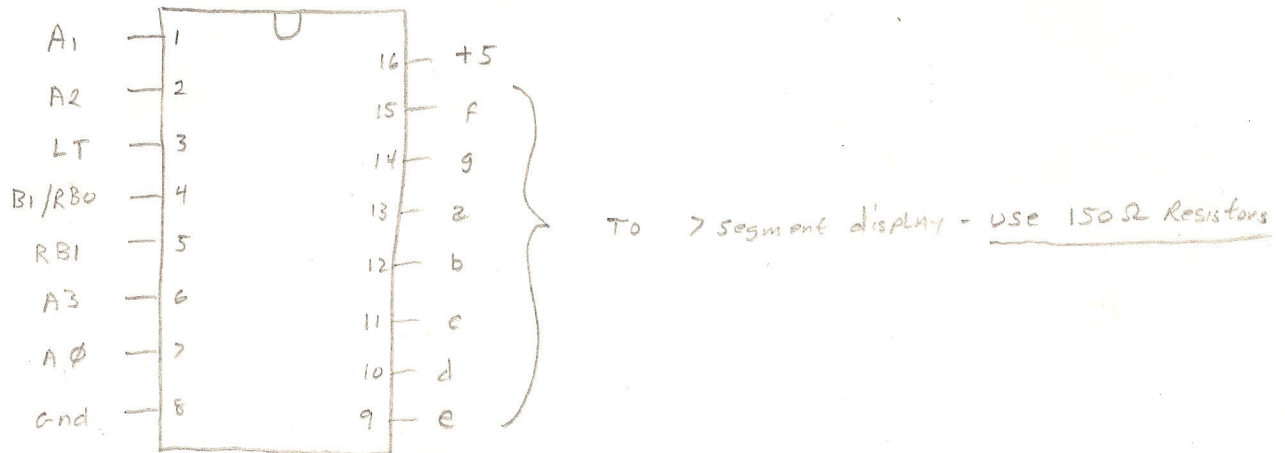 A1 1
A2 2
LT 3
BI/RBO 4
RBI 5
A3 6
AØ 7
Gnd 8
16 +5
15 f
14 g
13 a
12 b
11 c
10 d
9 e
To 7 segment display - use 150Ω Resistors